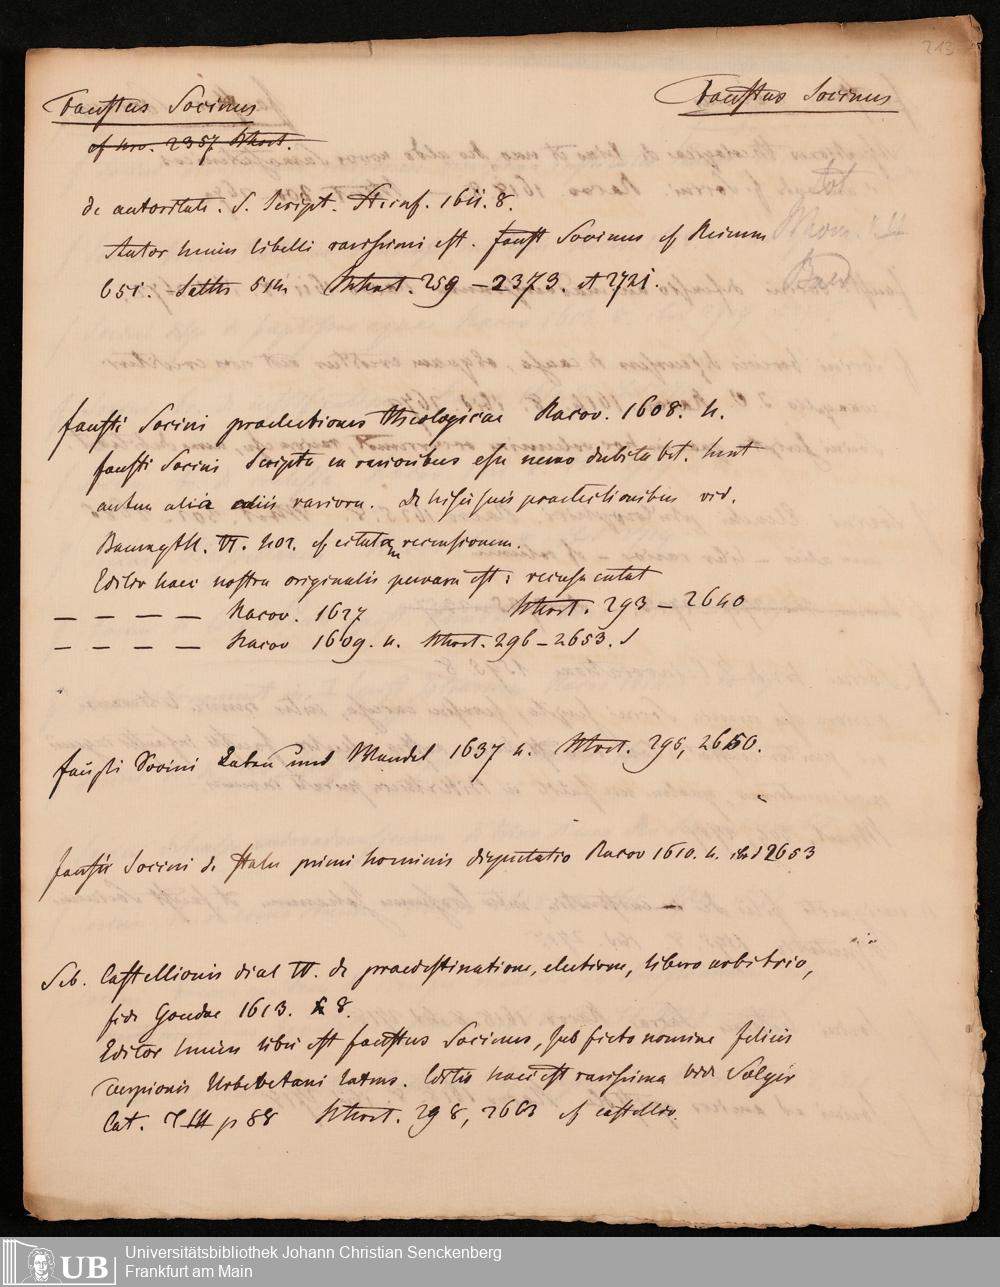 213
Faustus Socinus
Faustus Socinus
cf nro. 2357
de autoritate. S. Script. Steinf. 1611. 8.
Autor huius libelli rarissimi est. Faust Socinus cf Reimm
651. 259 – 2373. et 2721.
Fausti Socini praelectiones theologicae Racov. 1608. 4.
Fausti Socini Scripta in rarioribus esse nemo dubitabit. sunt
autem alia aliis rariora. De hisce suis praelectionibus vid.
Baumgth. VI. 402. cf recensionem.
Editio haec nostra originalis perrara est: recusa extat
— — — — Racov. 1627 293 – 2640
— — — — Racov 1609. 4. 296 – 2653.
Fausti Socini Leben und Wandel 1637 4. 295, 2650.
Fausti Socini de Statu primi hominis disputatio Racov 1610. 4. ibid 2653
Seb. Castellionis dial IV. de praedestinatione, electione, libero arbitrio,
fide Goudae 1613. 8.
Editor huius libri est Faustus Socinus, sub ficto nomine Felicis
Turpionis Urbevetani latens. Editio haec est rarissima vid Solger
Cat. T III p 88 298, 2663 cf castellio.
Universitätsbibliothek Johann Christian Senckenberg
Frankfurt am Main
UB